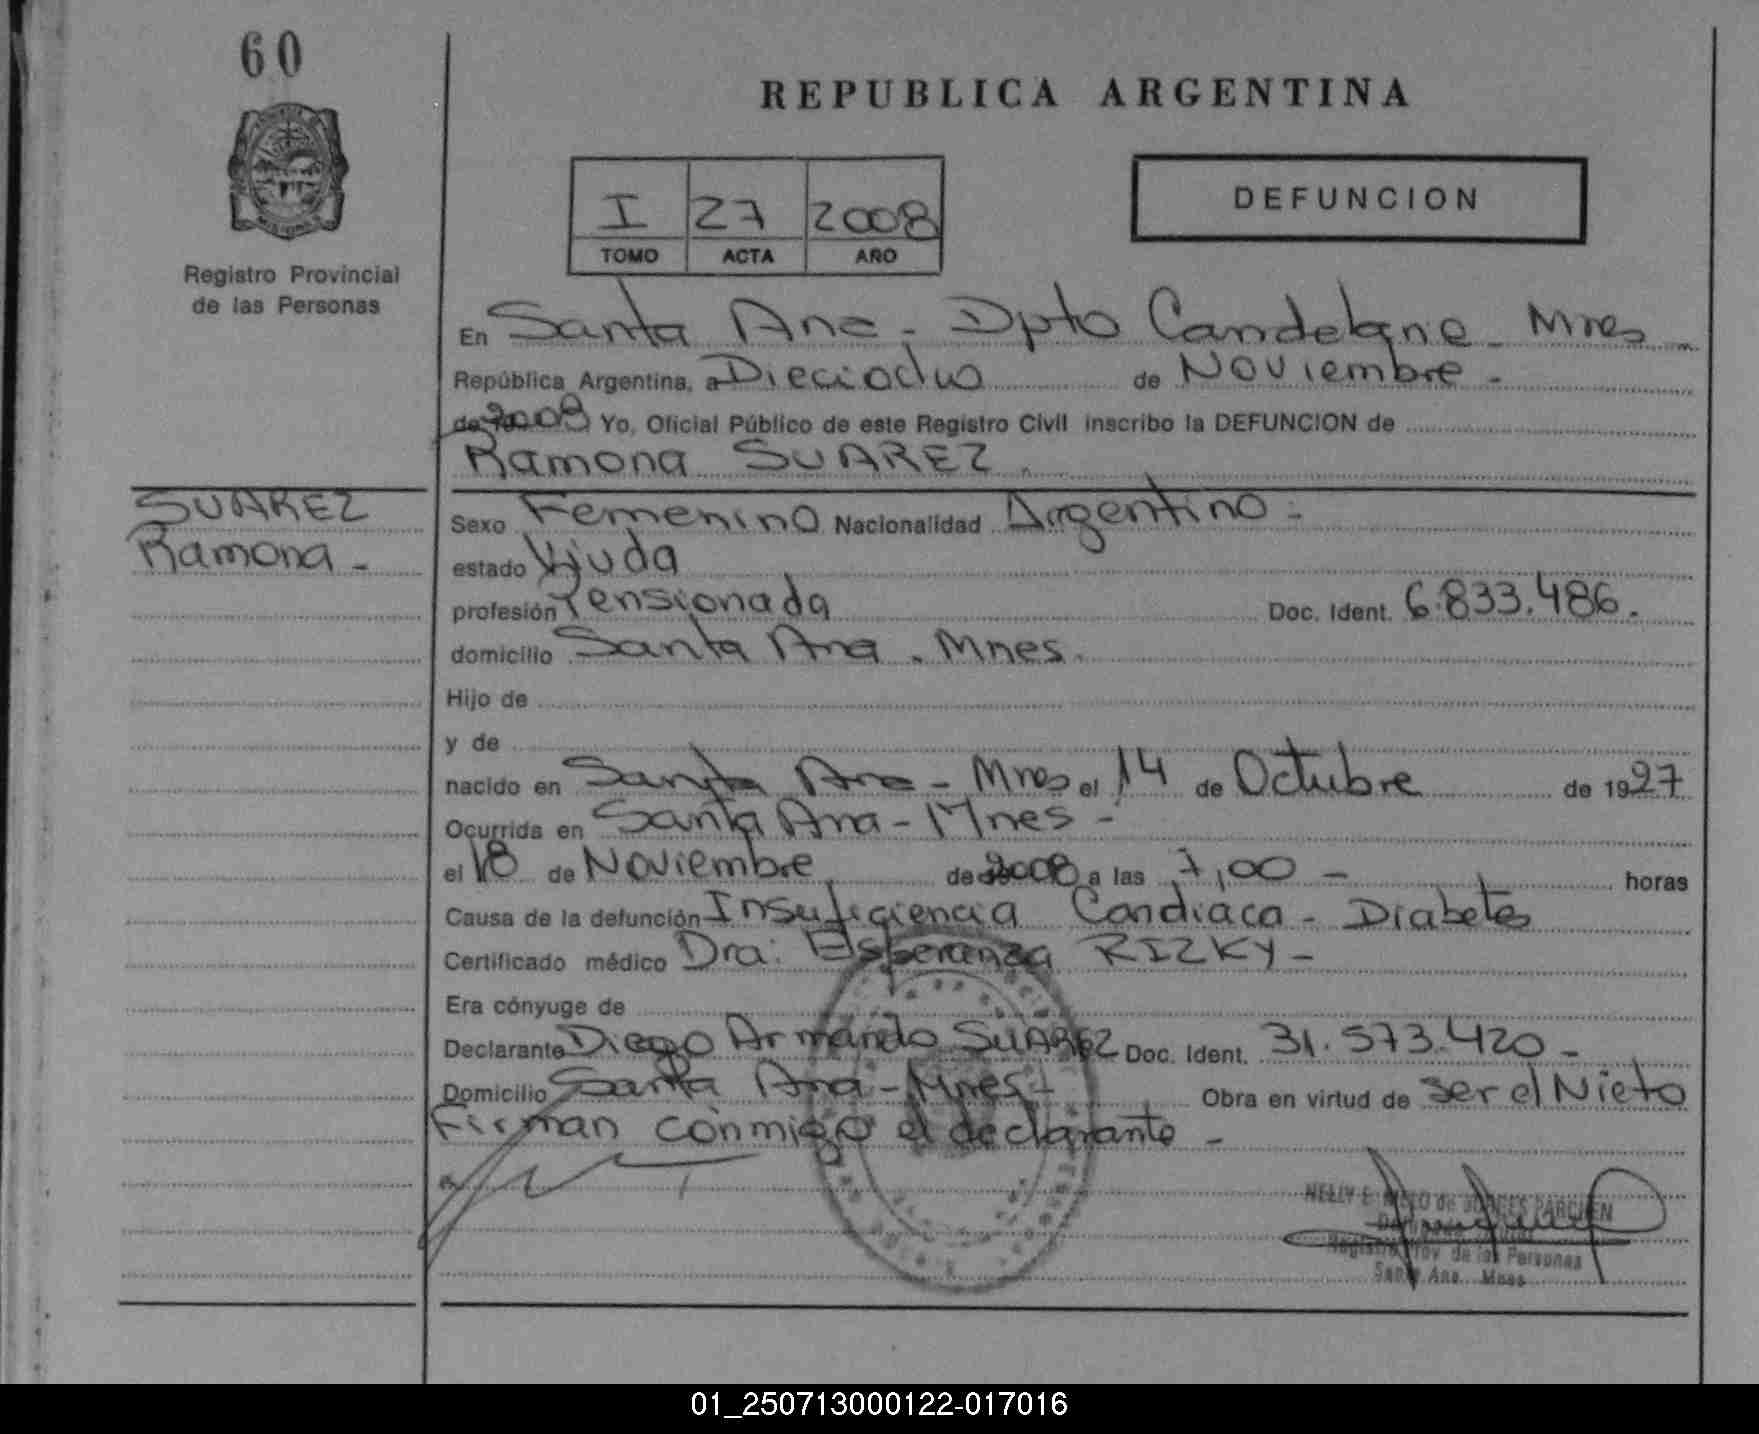 60
REPUBLICA ARGENTINA
I 27 2008
TOMO ACTA AÑO
DEFUNCION
Registro Provincial
de las Personas
En Santa Ana - Dpto Candelaria - Mnes
República Argentina, a Dieciocho de Noviembre -
de 2008 Yo, Oficial Público de este Registro Civil inscribo la DEFUNCION de
Ramona SUAREZ
SUAREZ
Ramona -
Sexo Femenino Nacionalidad Argentino -
estado Viuda
profesión Pensionada Doc. Ident. 6.833.486.
domicilio Santa Ana . Mnes.
Hijo de
y de
nacido en Santa Ana - Mnes el 14 de Octubre de 1927
Ocurrida en Santa Ana - Mnes -
el 18 de Noviembre de 2008 a las 7,00 - horas
Causa de la defunción Insuficiencia Cardiaca - Diabetes
Certificado médico Dra: Esperanza RIZKY -
Era cónyuge de
Declarante Diego Armando SUAREZ Doc. Ident. 31.573.420 -
Domicilio Santa Ana - Mnes - Obra en virtud de ser el Nieto
Firman conmigo el declarante -
NELLY E. de
Registro Prov. de las Personas
Santa Ana Mnes
01_250713000122-017016